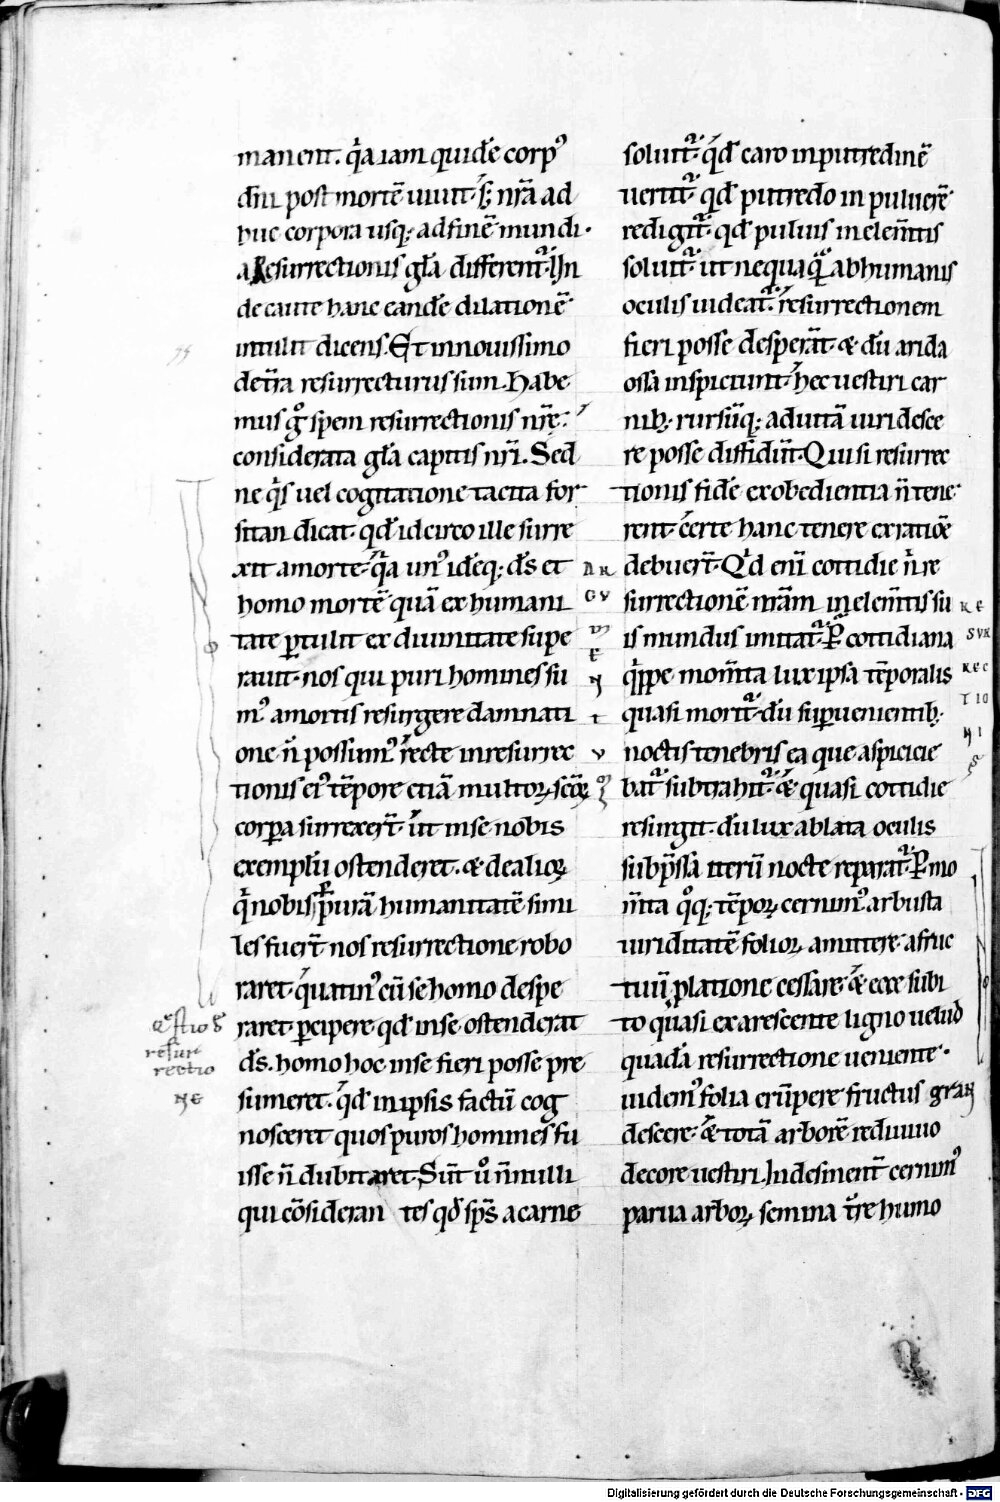 manent. q̇a iam quidē corpꝰ
dn̄i post mortē uiuit· s; nr̄a ad
huc corpora usq; ad finē mundi·
a Resurrectionis gl̄a differentᷣ· Un
de caute hanc eandē dilationē
intulit dicens. Et in nouissimo
de tr̄a resurrecturus sum. Habe
mus gͦ spem resurrectionis nr̄ę·
considerata gl̄a capitis nr̄i. Sed
ne q̇s uel cogitatione tacita for
sitan dicat· qđ idcirco ille surre
xit a morte· q̇a unꝰ idēq; ds̄ et
homo mortē quā ex humani
tate ꝑtulit ex diuinitate supe
rauit· nos qui puri homines su
mꝰ a mortis resurgere damnati
one n̄ possumꝰ· recte in resurrec
tionis eiꝰ tēpore etiā multoꝝ scōꝝ
corpora surrexer̄t· ut in se nobis
exemplū ostenderet· & de alioꝝ
q̇ nobis ꝑ purā humanitatē simi
les fuer̄t nos resurrectione robo
raret· quatinꝰ cū se homo despe
raret ꝑcipere qđ in se ostenderat
ds̄. homo hoc in se fieri posse pre
sumeret. qđ in ipsis factū cog
nosceret quos puros homines fu
isse n̄ dubitaret. Sūt ů n̄nulli
qui cōsideran tes qđ sp̄s a carne
ARGVMENTVꝫ
Q̄stio d̄
resur
rectio
NE
soluitᷣ· qđ caro in putredinē
uertitᷣ· qđ putredo in puluerē
redigitᷣ· qđ puluis in elem̄tis
soluitᷣ· ut nequaquā ab humanis
oculis uideatᷣ· resurrectionem
fieri posse desperāt· & dū arida
ossa inspiciunt· hec uestiri car
nib; rursūq; ad uitā uiridesce
re posse diffidūt. Qui si resurrec
tionis fidē ex obedientia n̄ tene
rent· certe hanc tenere ex ratiōe
debuer̄t. Qd enī cottidie n̄ re
surrectionē nr̄am in elem̄tis su
is mundus imitatᷣ· P̱ cottidiana
q̇ppe mom̄ta lux ipsa tēporalis
quasi moritᷣ· dū supuenientib;
noctis tenebris ea que aspicie
batᷣ subtrahitᷣ· & quasi cottidie
resurgit· dū lux ablata oculis
supp̄ssa iterū nocte reparatᷣ· P̱ mo
m̄ta qͦq; tēpoꝝ cernimꝰ arbusta
uiriditatē folioꝝ amittere· a fruc
tuū platione cessare· & ecce subi
to quasi ex arescente ligno uelud
quadā resurrectione ueniente·
uidemꝰ folia erūpere fructus gran
descere· & totā arborē rediuiuo
decore uestiri. Indesinent̄ cernimꝰ
parua arboꝝ semina tr̄re humo
RESVRRECTIONIS
Digitalisierung gefördert durch die Deutsche Forschungsgemeinschaft - DFG